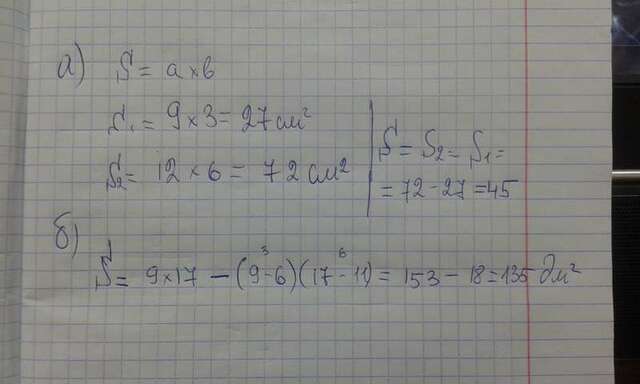 а) S = a × b
S₁ = 9 × 3 = 27 см²
S₂ = 12 × 6 = 72 см²
S = S₂ – S₁ =
= 72 - 27 = 45
б)
3 6
S = 9 × 17 – (9 - 6)(17 - 11) = 153 – 18 = 135 дм²